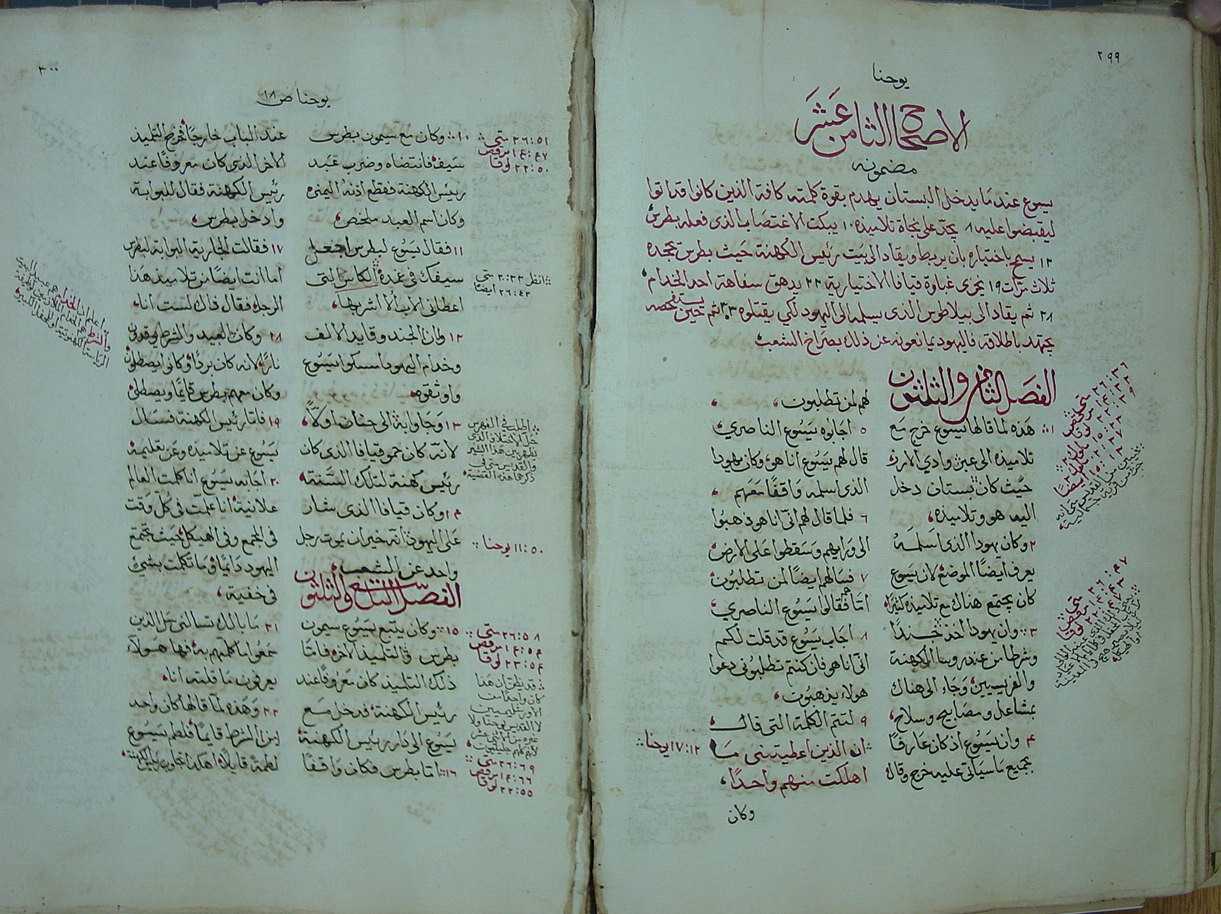 ٢٩٩
يوحنا
الاصحاح الثامن عشر
مضمونه
يسوع عند ما يدخل البستان يهدم بقوة كلمته كافة الذين كانوا قد اتوا
ليقبضوا عليه ٨ يحث على نجاة تلاميذه ١٠ يبكت الاغتصاب الذي فعله بطرس
١٢ يسمح باختياره بان يربط ويقاد الى بيت رئيس الكهنة حيث بطرس يجحده
ثلاث مرات ١٩ يخزى غباوة قيافا الاختيارية ٢٢ يدهق سفاهة احد الخدام
٢٨ ثم يقاد الى بيلاطوس الذي يسلمه الى اليهود لكي يقتلوه ٣٠ ثم حين يستفحصه
يجتهد باطلاقه فاليهود يمانعونه عن ذلك بصراخ الشعب
الفصل الثامن والثلثون
١ هذه لما قالها يسوع خرج مع
تلاميذه الى عبر وادي الارز
حيث كان بستان دخل
اليه هو وتلاميذه
٢ وكان يهودا الذي اسلمه
يعرف ايضا الموضع لان يسوع
كان يجتمع هناك مع تلاميذه كثيرا
٣ وان يهودا اخذ جندا
وشرطا من عند روسا الكهنة
والفريسيين وجاء الى هناك
بمشاعل ومصابيح وسلاح
٤ وان يسوع اذ كان عارفا
بجميع ما سياتي عليه خرج وقال
لهم لمن تطلبون
٥ اجابوه يسوع الناصري
قال لهم يسوع انا هو وكان يهودا
الذي اسلمه واقفا معهم
٦ فلما قال لهم اني انا هو ذهبوا
الى ورايهم وسقطوا على الارض
٧ فسالهم ايضا لمن تطلبون
اما هم فقالوا يسوع الناصري
٨ اجاب يسوع قد قلت لكم
اني انا هو فان كنتم تطلبوني دعوا
هولاء يذهبون
٩ لتتم الكلمة التي قال
ان الذين اعطيتني ما
اهلكت منهم واحدا
١٧:١٢ يوحنا
وكان
٣٠٠
يوحنا ص ١٨
١٠ وكان مع سيمون بطرس
سيف فانتضاه وضرب عبد
رييس الكهنة فقطع اذنه اليمنى
وكان اسم العبد ملخص
١١ فقال يسوع لبطرس اجعل
سيفك في غمده الكاس التي
اعطاني الاب الا اشربها
١٢ وان الجند وقايد الالف
وخدام اليهود امسكوا يسوع
واوثقوه
١٣ وجاوا به الى حنان اولا
لانه كان حمو قيافا الذي كان
رئيس كهنة لتلك السنة
١٤ وكان قيافا الذي شار
على اليهود انه خير ان يموت رجل
واحد عن الشعب
الفصل التاسع والثلثون
١٥ وكان يتبع يسوع سيمون
بطرس والتلميذ الاخر فاما
ذلك التلميذ كان معروفا عند
رئيس الكهنة فدخل مع
يسوع الى دار رئيس الكهنة
١٦ اما بطرس فكان واقفا
٢٦:٥١ متى
١٤:٤٧ مرقص
٢٢:٥٠ لوقا
١١:٥٠ يوحنا
٢٦:٥٨ متى
١٤:٥٤ مرقص
٢٢:٥٤ لوقا
٢٦:٦٩ متى
١٤:٦٦ مرقص
٢٢:٥٥ لوقا
عند الباب خارجا فخرج التلميذ
الاخر الذي كان معروفا عند
رئيس الكهنة فقال للبوابة
وادخل بطرس
١٧ فقالت الجارية البوابة لبطرس
اما انت ايضا من تلاميذ هذا
الرجل فقال ذاك لست انا
١٨ وكان العبيد والشرط وقوف
نارا لانه كان بردا وكانوا يصطلون
وكان معهم بطرس قايما ويصطلي
١٩ فاما رئيس الكهنة فسال
يسوع عن تلاميذه وعن تعليمه
٢٠ اجابه يسوع انا كلمت العالم
علانية انا علمت في كل وقت
في المجمع وفي الهيكل حيث يجتمع
اليهود دايما وما تكلمت بشيء
في خفية
٢١ ما بالك تسالني سل الذين
سمعوا ما كلمتهم به فها هولاء
يعرفون ما قلته انا
٢٢ وهذه لما قالها كان واحد
من الشرط قايما فلطم يسوع
لطمة قايلا اهكذا تجاوب رييس الكهنة